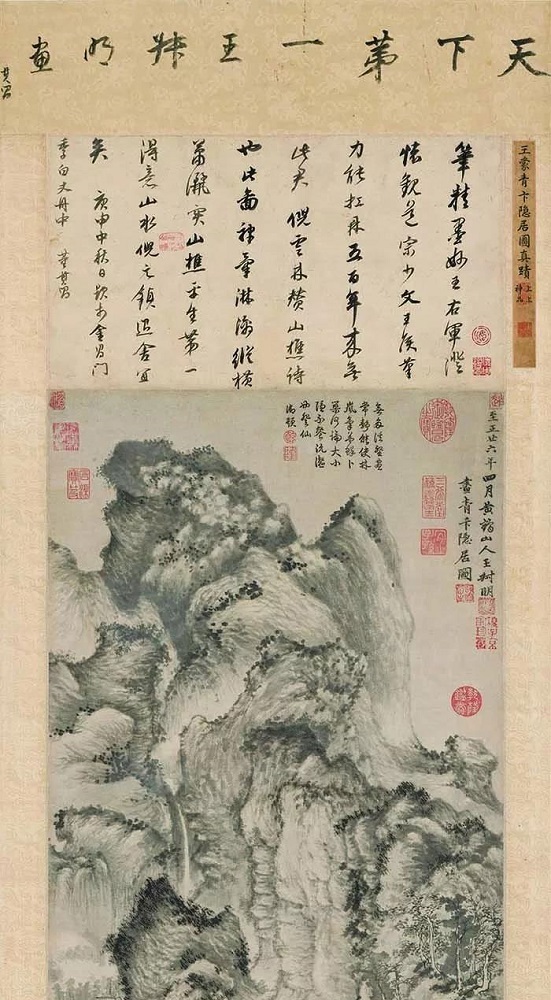 天下第一王叔明畫
其昌
王蒙青卞隱居圖真蹟 上上神品
筆精墨妙王右軍澄
懷觀道宗少文王侯筆
力能扛鼎五百年來無
此君倪雲林贊山樵詩
也此圖神氣淋漓縱橫
蕭灑實山樵平生第一
得意山水倪元鎮退舍宜
矣 庚申中秋日題於金昌門
季白丈舟中 董其昌
至正廿六年四月黃鶴山人王叔明
畫青卞隱居圖